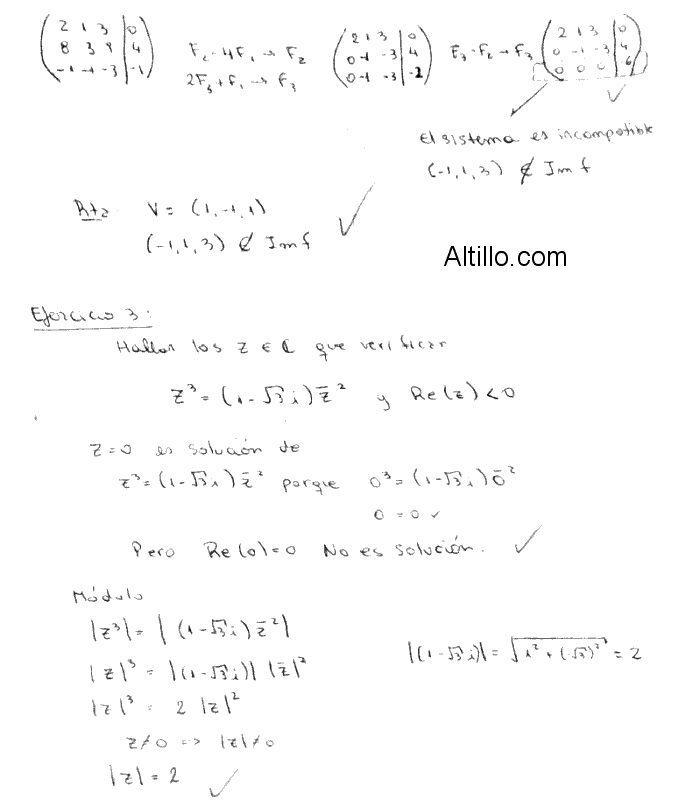 (2 1 3 | 0)
(8 3 9 | 4)
(-1 -1 -3 | -1)
F₂ - 4F₁ → F₂
2F₃ + F₁ → F₃
(2 1 3 | 0)
(0 -1 -3 | 4)
(0 -1 -3 | -2)
F₃ - F₂ → F₃
(2 1 3 | 0)
(0 -1 -3 | 4)
(0 0 0 | -6)
✓
El sistema es incompatible
(-1,1,3) ∉ Im f
Rta V = (1,-1,1)
(-1,1,3) ∉ Im f ✓
Altillo.com
Ejercicio 3:
Hallar los z ∈ ℂ que verifican
z³ = (1-√3 i) z̄² y Re(z) < 0
z=0 es solución de
z³ = (1-√3 i) z̄² porque 0³ = (1-√3 i) 0̄²
0 = 0 ✓
Pero Re(0)=0 No es solución. ✓
Módulo
|z³| = |(1-√3 i) z̄²|
|z|³ = |(1-√3 i)| |z̄|²
|(1-√3 i)| = √(1² + (√3)²) = 2
|z|³ = 2 |z|²
z≠0 => |z|≠0
|z| = 2 ✓